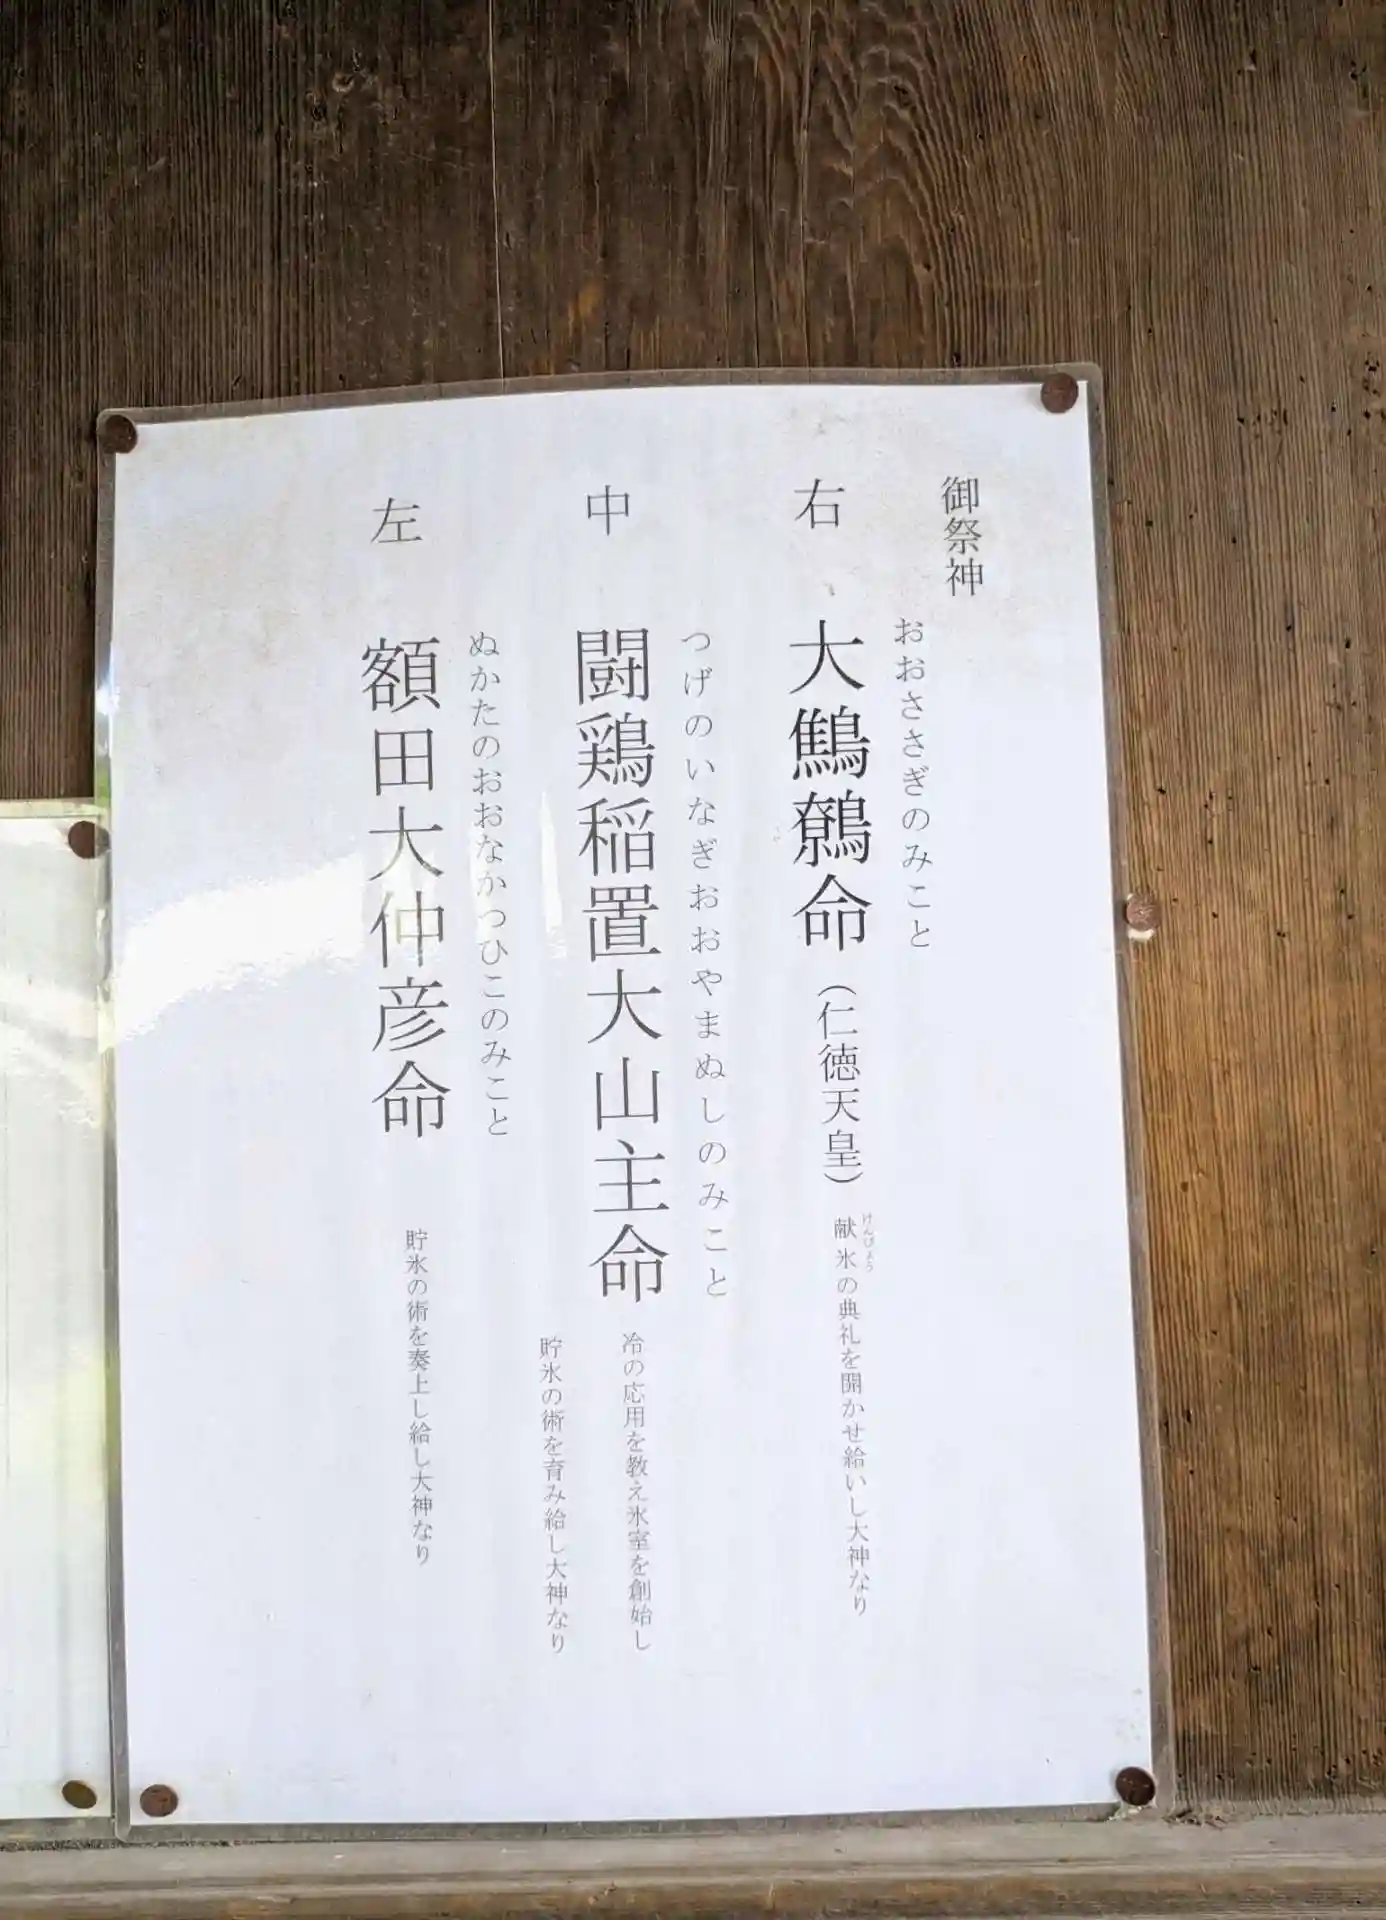 御祭神
おおささぎのみこと
右 大鷦鷯命（仁徳天皇）
けんぴょう
献氷の典礼を開かせ給いし大神なり
つげのいなぎおおやまぬしのみこと
中 闘鶏稲置大山主命
冷の応用を教え氷室を創始し
貯氷の術を育み給し大神なり
ぬかたのおおなかつひこのみこと
左 額田大仲彦命
貯氷の術を奏上し給し大神なり